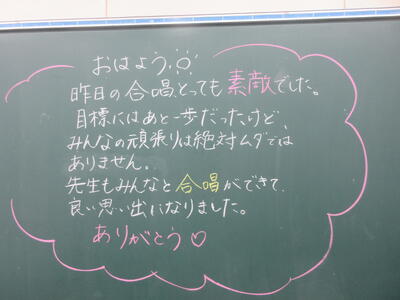 おはよう
昨日の合唱とっても素敵でした。
目標にはあと一歩だったけど、
みんなの頑張りは絶対ムダでは
ありません。
先生もみんなと合唱ができて、
良い思い出になりました。
ありがとう♡